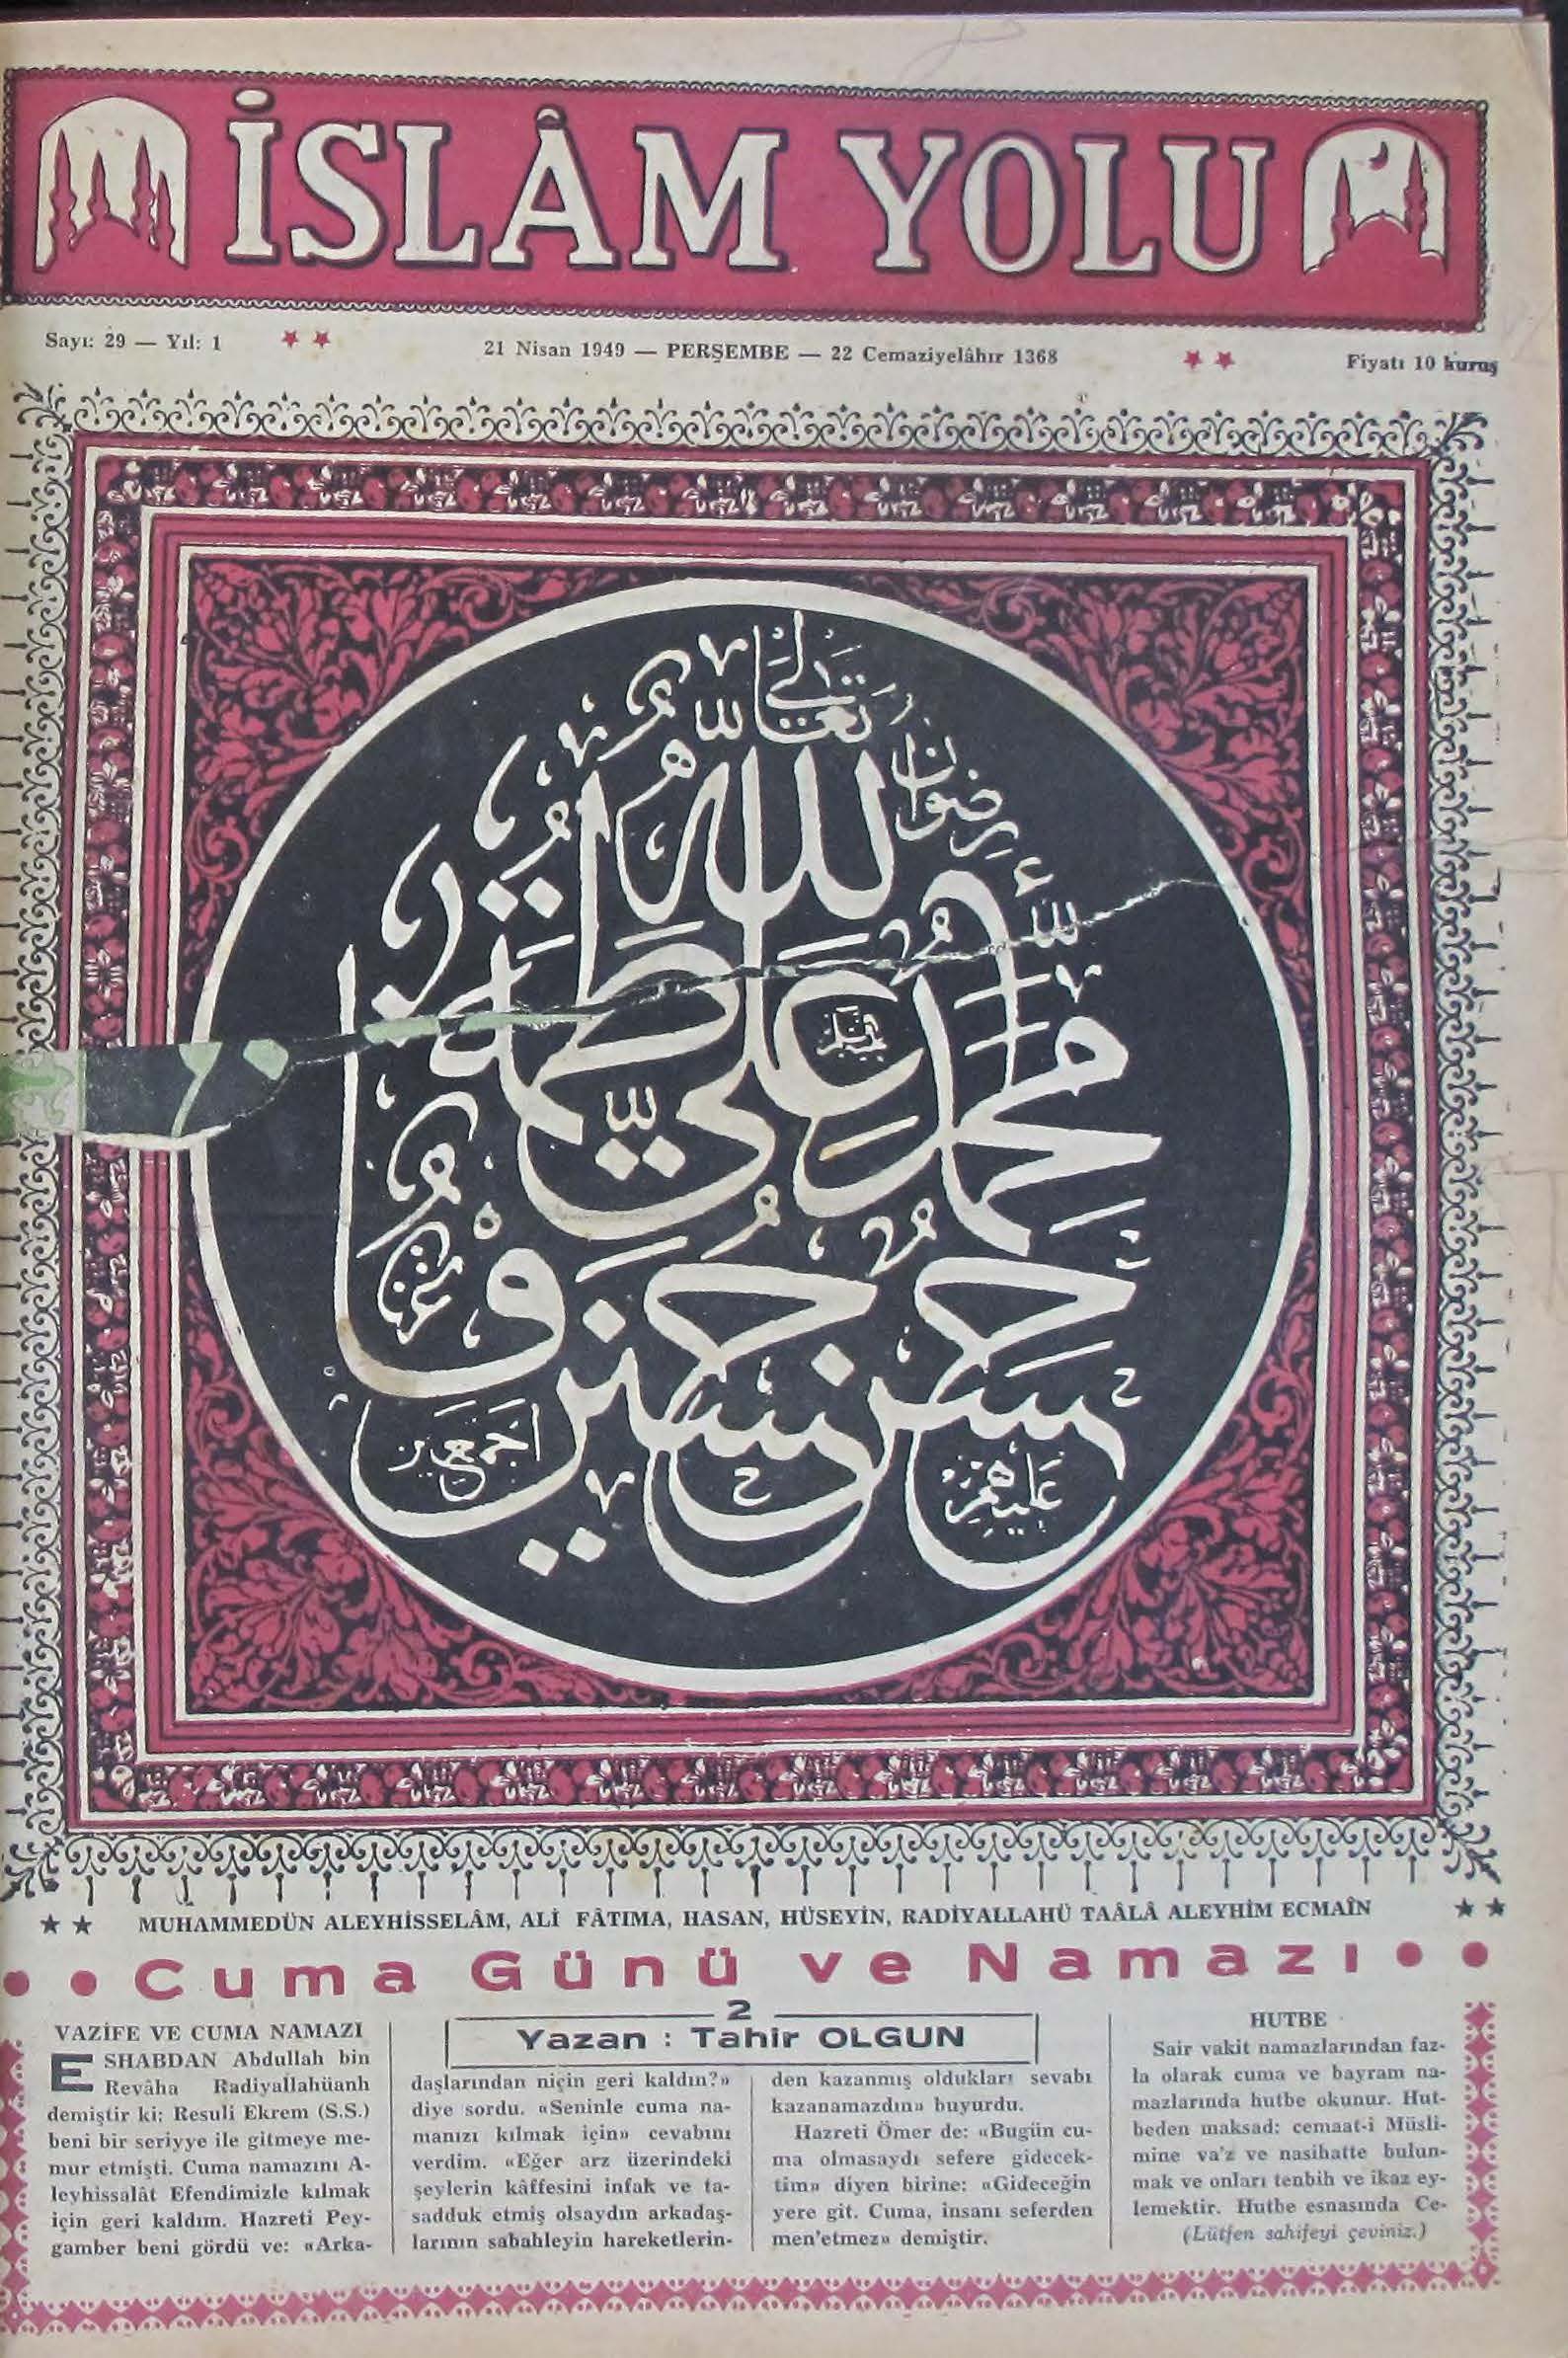 İSLÂM YOLU
Sayı: 29 — Yıl: 1
21 Nisan 1949 — PERŞEMBE — 22 Cemaziyelâhır 1368
Fiyatı 10 kuruş
تعالى
رضوان
الله
محمد
علي
فاطمة
حسن حسين
عليهم
اجمعين
MUHAMMEDÜN ALEYHİSSELÂM, ALİ FÂTIMA, HASAN, HÜSEYİN, RADİYALLAHÜ TAÂLÂ ALEYHİM ECMAÎN
Cuma Günü ve Namazı
2
Yazan : Tahir OLGUN
VAZİFE VE CUMA NAMAZI
ESHABDAN Abdullah bin
Revâha Radiyallahüanh
demiştir ki: Resuli Ekrem (S.S.)
beni bir seriyye ile gitmeye me-
mur etmişti. Cuma namazını A-
leyhissalât Efendimizle kılmak
için geri kaldım. Hazreti Pey-
gamber beni gördü ve: «Arka-
daşlarından niçin geri kaldın?»
diye sordu. «Seninle cuma na-
manızı kılmak için» cevabını
verdim. «Eğer arz üzerindeki
şeylerin kâffesini infak ve ta-
sadduk etmiş olsaydın arkadaş-
larının sabahleyin hareketlerin-
den kazanmış oldukları sevabı
kazanamazdın» buyurdu.
Hazreti Ömer de: «Bugün cu-
ma olmasaydı sefere gidecek-
tim» diyen birine: «Gideceğin
yere git. Cuma, insanı seferden
men'etmez» demiştir.
HUTBE
Sair vakit namazlarından faz-
la olarak cuma ve bayram na-
mazlarında hutbe okunur. Hut-
beden maksad: cemaat-i Müsli-
mine va'z ve nasihatte bulun-
mak ve onları tenbih ve ikaz ey-
lemektir. Hutbe esnasında Ce-
(Lütfen sahifeyi çeviniz.)